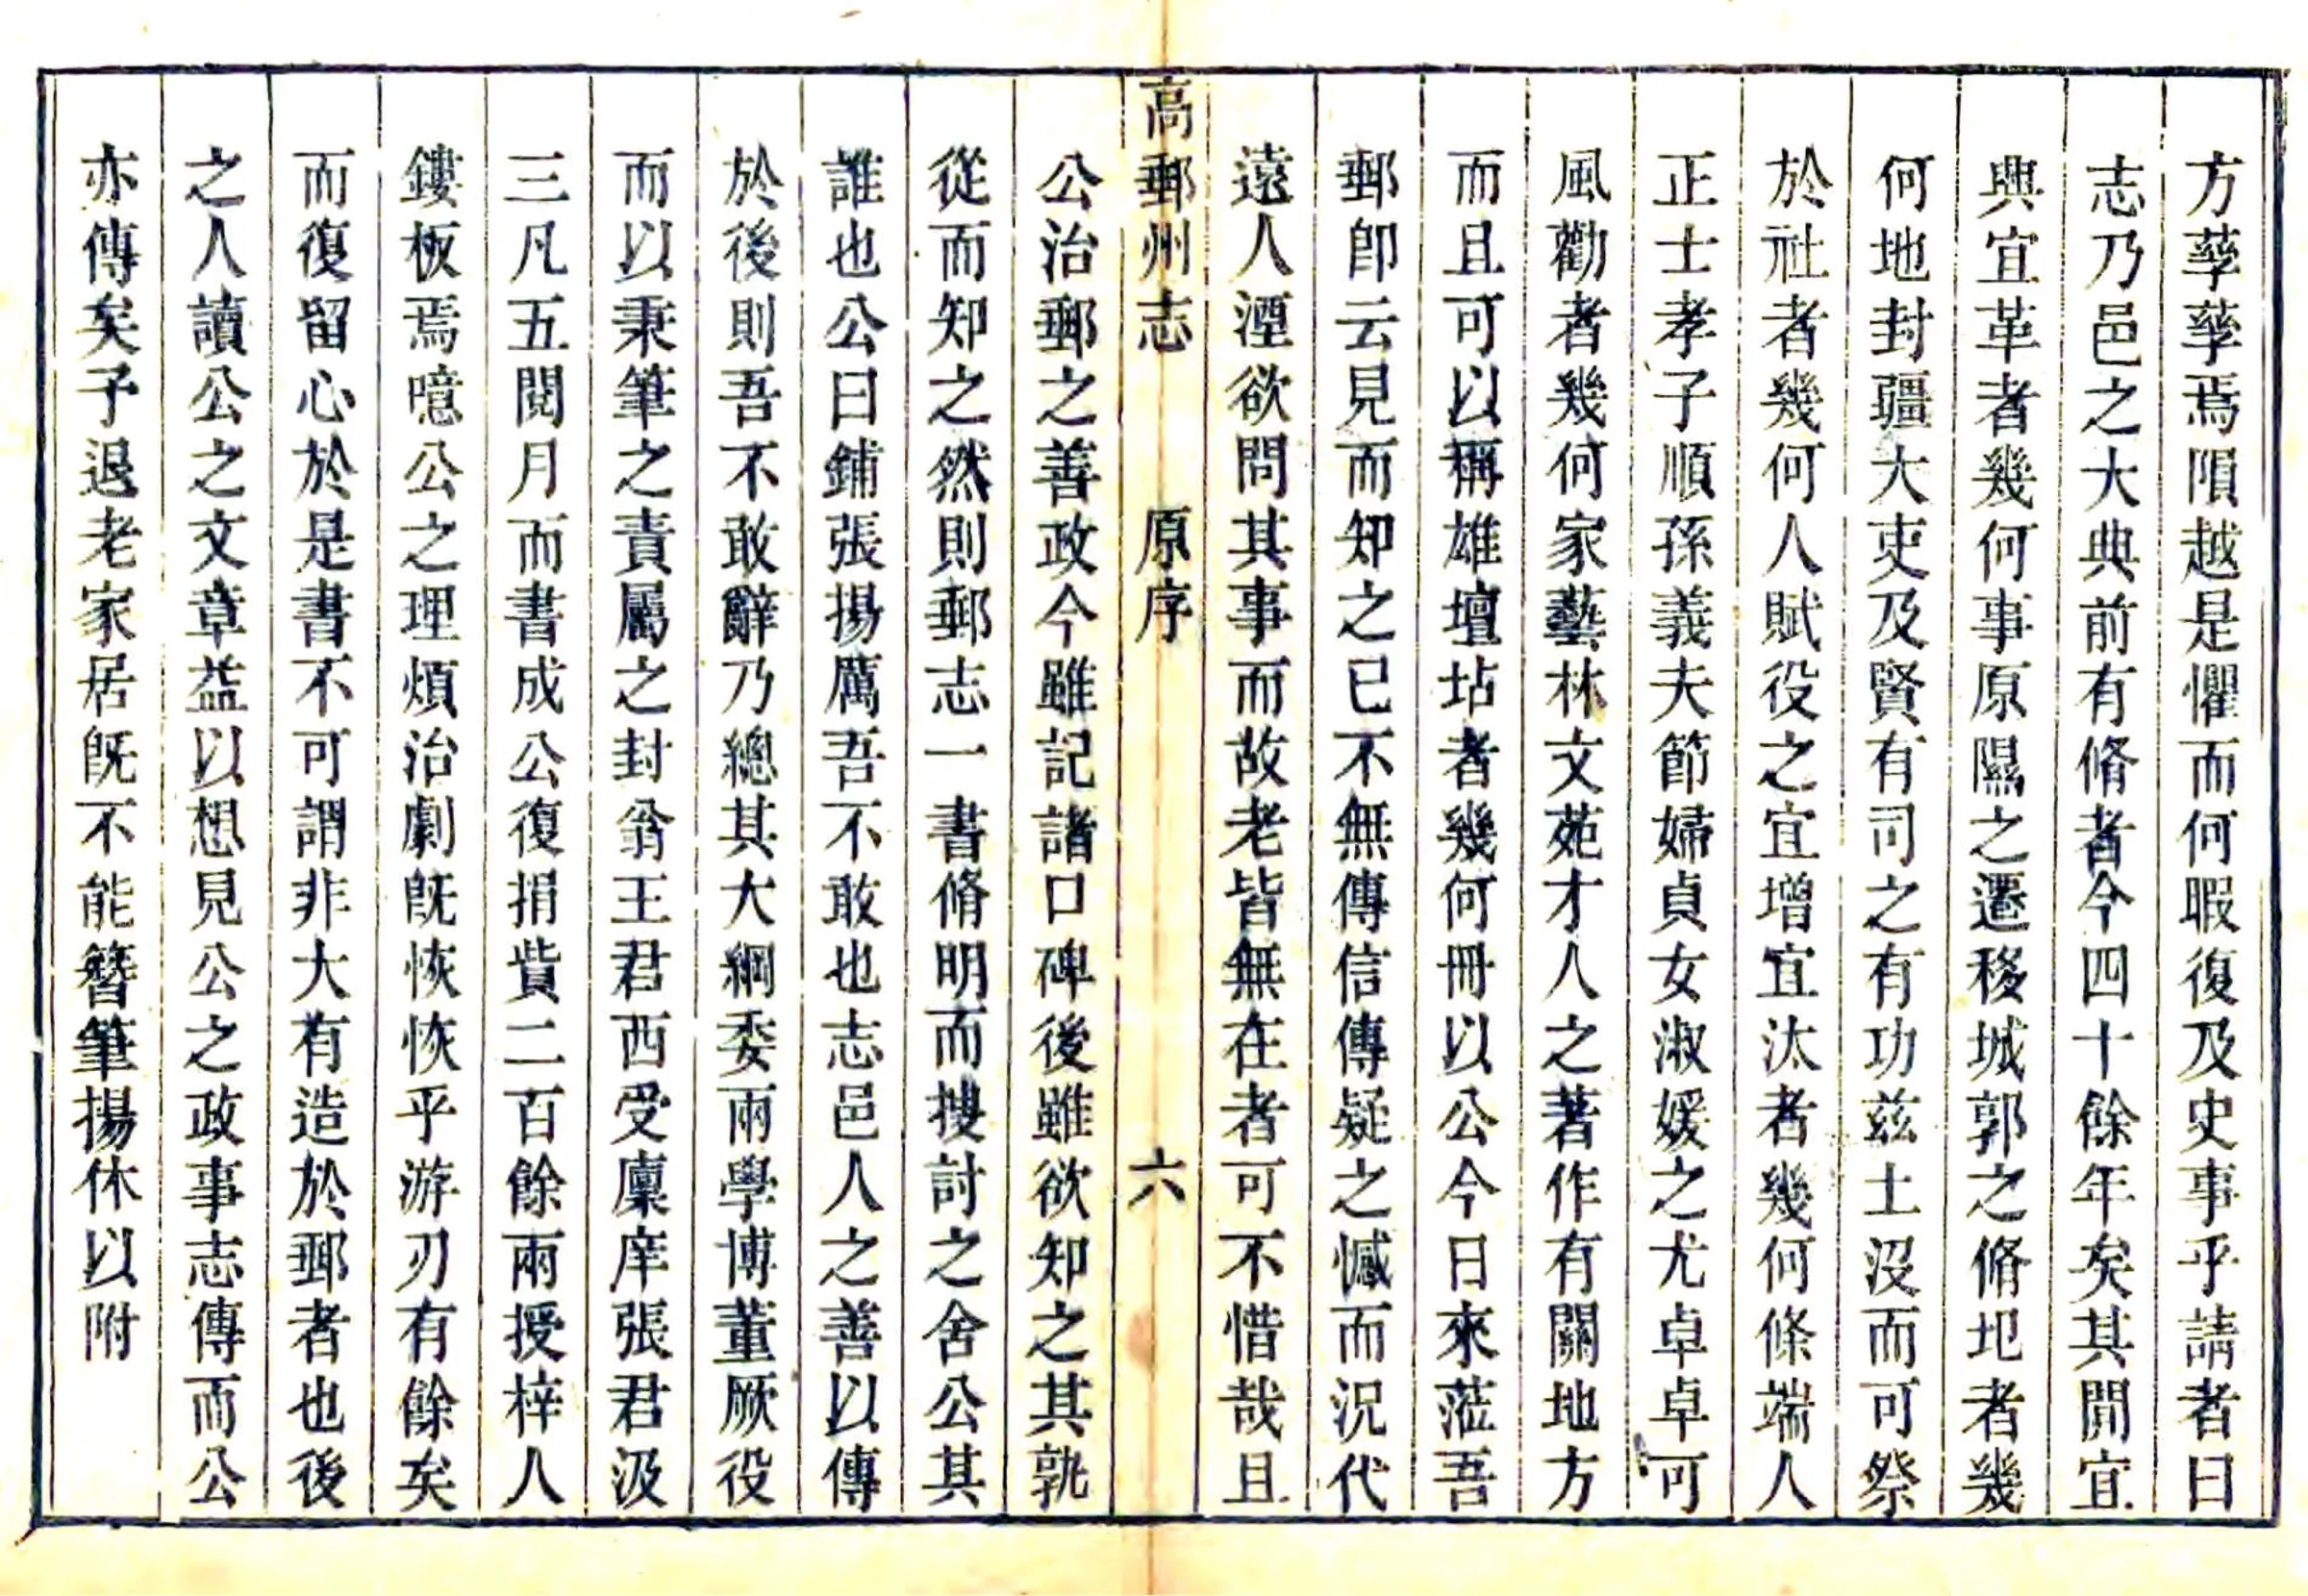 方孳孳焉隕越是懼而何暇復及史事乎請者曰
志乃邑之大典前有脩者今四十餘年矣其閒宜
興宜革者幾何事原隰之遷移城郭之脩圯者幾
何地封疆大吏及賢有司之有功兹土沒而可祭
於社者幾何人賦役之宜增宜汰者幾何條端人
正士孝子順孫義夫節婦貞女淑媛之尤卓卓可
風勸者幾何家藝林文苑才人之著作有關地方
而且可以稱雄壇坫者幾何冊以公今日來蒞吾
郵卽云見而知之已不無傳信傳疑之憾而況代
遠人湮欲問其事而故老皆無在者可不惜哉且
高郵州志 原序 六
公治郵之善政今雖記諸口碑後雖欲知之其孰
從而知之然則郵志一書脩明而搜討之舍公其
誰也公曰鋪張揚厲吾不敢也志邑人之善以傳
於後則吾不敢辭乃總其大綱委兩學博董厥役
而以秉筆之責屬之封翁王君西受廩庠張君汲
三凡五閱月而書成公復捐貲二百餘兩授梓人
鏤板焉噫公之理煩治劇旣恢恢乎游刃有餘矣
而復留心於是書不可謂非大有造於郵者也後
之人讀公之文章益以想見公之政事志傳而公
亦傳矣予退老家居旣不能簪筆揚休以附